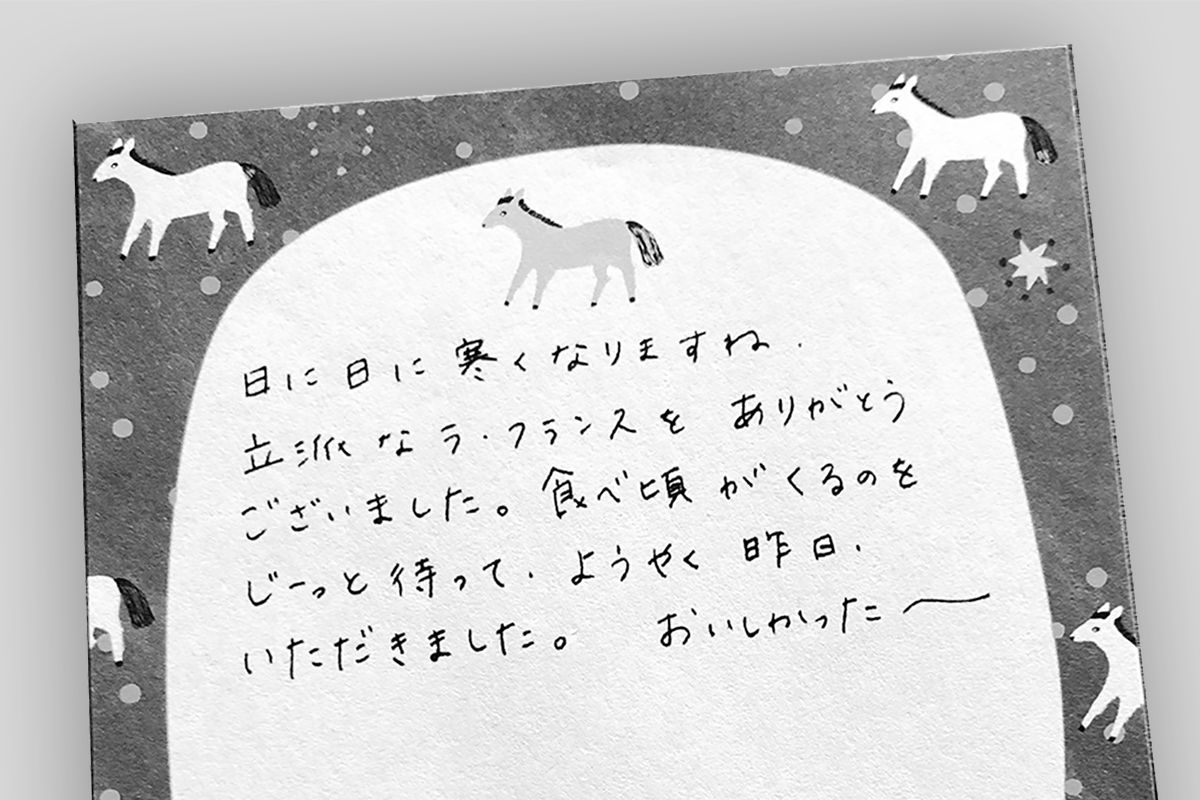 日に日に寒くなりますね.
立派なラ・フランスを ありがとう
ございました。食べ頃がくるのを
じーっと待って、ようやく昨日、
いただきました。 おいしかった〜